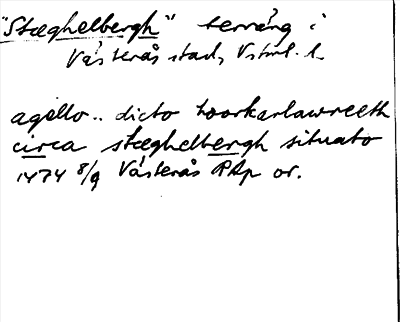 "Stæghelbergh" terräng i
Västerås stad, Vstml. l.
agello.. dicto toorkarlawreeth
circa stæghelbergh situato
1474 8/9 Västerås RAp or.